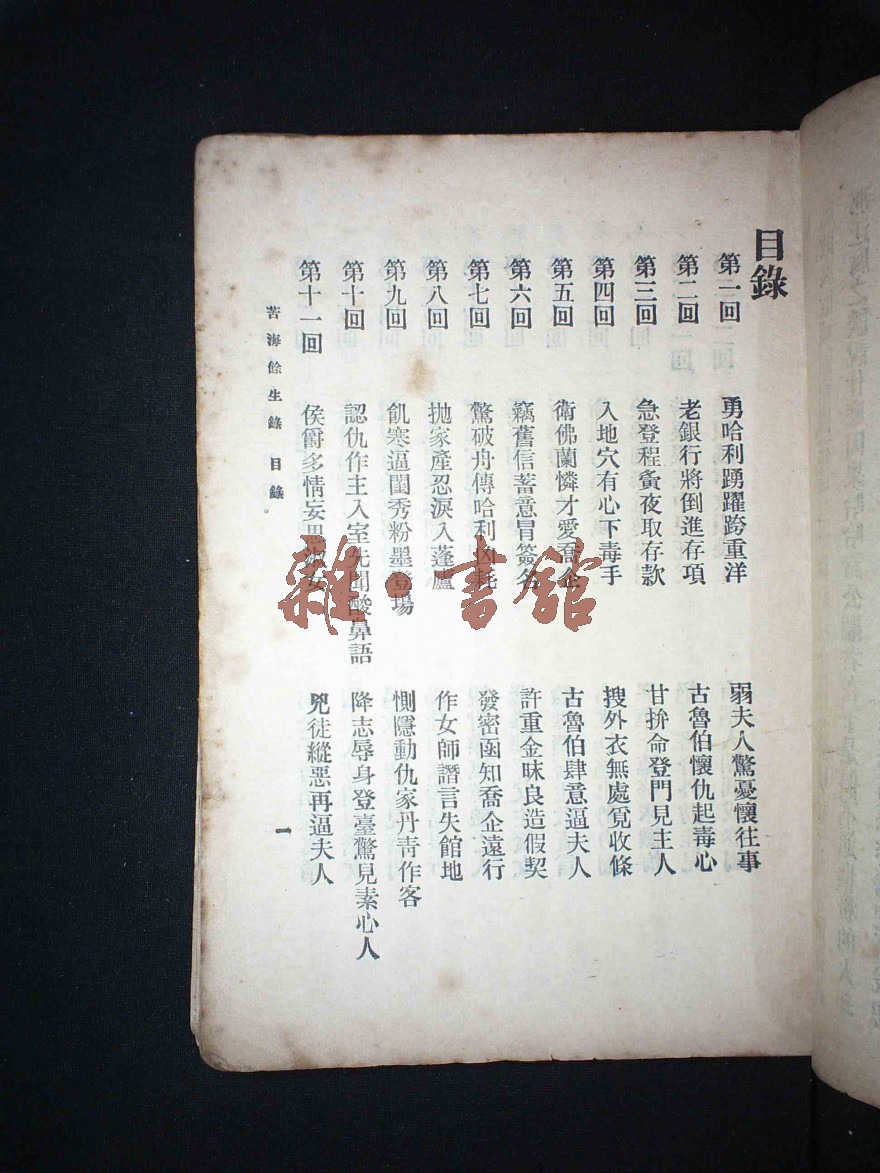 目錄
第一回 勇哈利踴躍跨重洋 弱夫人驚憂懷往事
第二回 老銀行將倒進存項 古魯伯懷仇起毒心
第三回 急登程夤夜取存款 甘拚命登門見主人
第四回 入地穴有心下毒手 搜外衣無處覓收條
第五回 衛佛蘭憐才愛喬企 古魯伯肆意逼夫人
第六回 竊舊信蓄意冒簽名 許重金昧良造假契
第七回 驚破舟傳哈利凶耗 發密函知喬企遠行
第八回 拋家產忍淚入蓬廬 作女師譖言失館地
第九回 飢寒逼閨秀粉墨登場 惻隱動仇家丹青作客
第十回 認仇作主入室先聞酸鼻語 降志辱身登臺驚見素心人
第十一回 侯爵多情妄思淑女 兇徒縱惡再逼夫人
苦海餘生錄 目錄
一
雜·書館